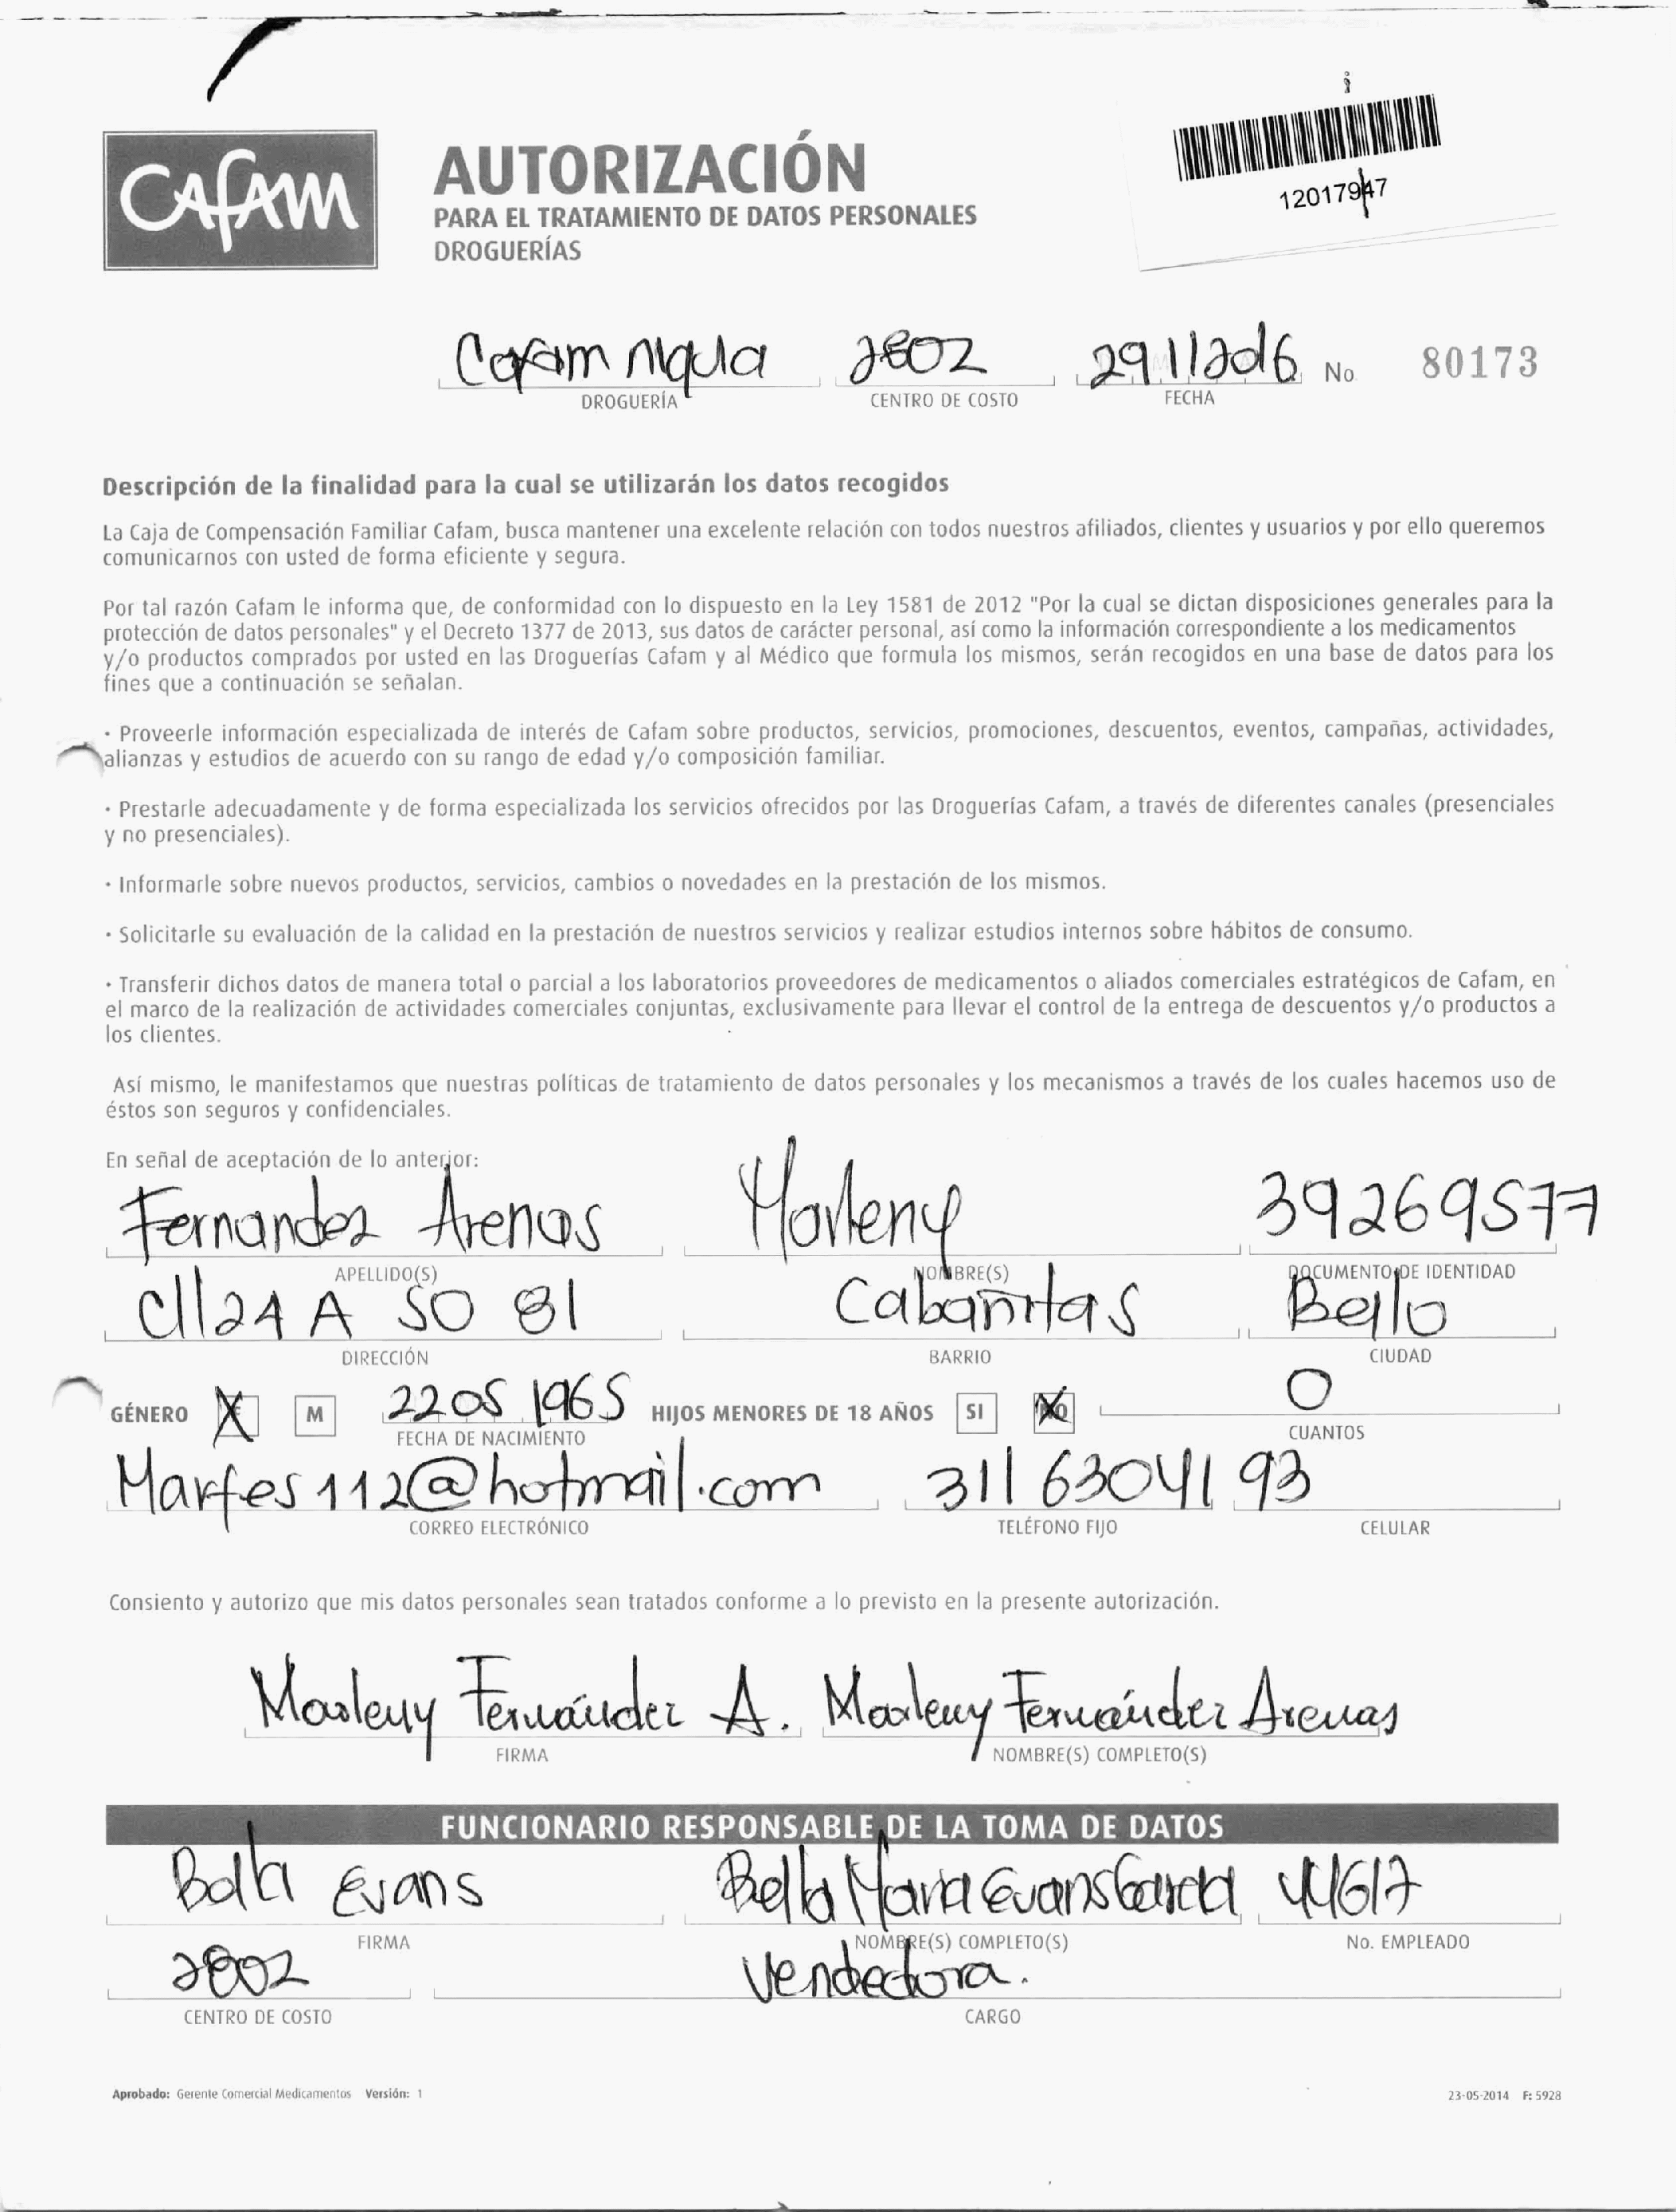 CAfAM
AUTORIZACIÓN
PARA EL TRATAMIENTO DE DATOS PERSONALES
DROGUERÍAS
12017947
Cafam niquia 2802 29 11 2016 No 80173
DROGUERÍA CENTRO DE COSTO FECHA
Descripción de la finalidad para la cual se utilizarán los datos recogidos
La Caja de Compensación Familiar Cafam, busca mantener una excelente relación con todos nuestros afiliados, clientes y usuarios y por ello queremos
comunicarnos con usted de forma eficiente y segura.
Por tal razón Cafam le informa que, de conformidad con lo dispuesto en la Ley 1581 de 2012 "Por la cual se dictan disposiciones generales para la
protección de datos personales" y el Decreto 1377 de 2013, sus datos de carácter personal, así como la información correspondiente a los medicamentos
y/o productos comprados por usted en las Droguerías Cafam y al Médico que formula los mismos, serán recogidos en una base de datos para los
fines que a continuación se señalan.
· Proveerle información especializada de interés de Cafam sobre productos, servicios, promociones, descuentos, eventos, campañas, actividades,
alianzas y estudios de acuerdo con su rango de edad y/o composición familiar.
· Prestarle adecuadamente y de forma especializada los servicios ofrecidos por las Droguerías Cafam, a través de diferentes canales (presenciales
y no presenciales).
· Informarle sobre nuevos productos, servicios, cambios o novedades en la prestación de los mismos.
· Solicitarle su evaluación de la calidad en la prestación de nuestros servicios y realizar estudios internos sobre hábitos de consumo.
· Transferir dichos datos de manera total o parcial a los laboratorios proveedores de medicamentos o aliados comerciales estratégicos de Cafam, en
el marco de la realización de actividades comerciales conjuntas, exclusivamente para llevar el control de la entrega de descuentos y/o productos a
los clientes.
Así mismo, le manifestamos que nuestras políticas de tratamiento de datos personales y los mecanismos a través de los cuales hacemos uso de
éstos son seguros y confidenciales.
En señal de aceptación de lo anterior:
Fernandez Arenas Marleny 39269577
APELLIDO(S) NOMBRE(S) DOCUMENTO DE IDENTIDAD
Cll 24 A 50 81 Cabañitas Bello
DIRECCIÓN BARRIO CIUDAD
GÉNERO X M 22 05 1965 HIJOS MENORES DE 18 AÑOS SI NO 0
FECHA DE NACIMIENTO CUANTOS
Marfes112@hotmail.com 311 6304193
CORREO ELECTRÓNICO TELÉFONO FIJO CELULAR
Consiento y autorizo que mis datos personales sean tratados conforme a lo previsto en la presente autorización.
Marleny Fernández A. Marleny Fernández Arenas
FIRMA NOMBRE(S) COMPLETO(S)
FUNCIONARIO RESPONSABLE DE LA TOMA DE DATOS
Bella Evans Bella Maria Evans Garcia 44617
FIRMA NOMBRE(S) COMPLETO(S) No. EMPLEADO
2802 Vendedora.
CENTRO DE COSTO CARGO
Aprobado: Gerente Comercial Medicamentos Versión: 1 23-05-2014 F: 5928